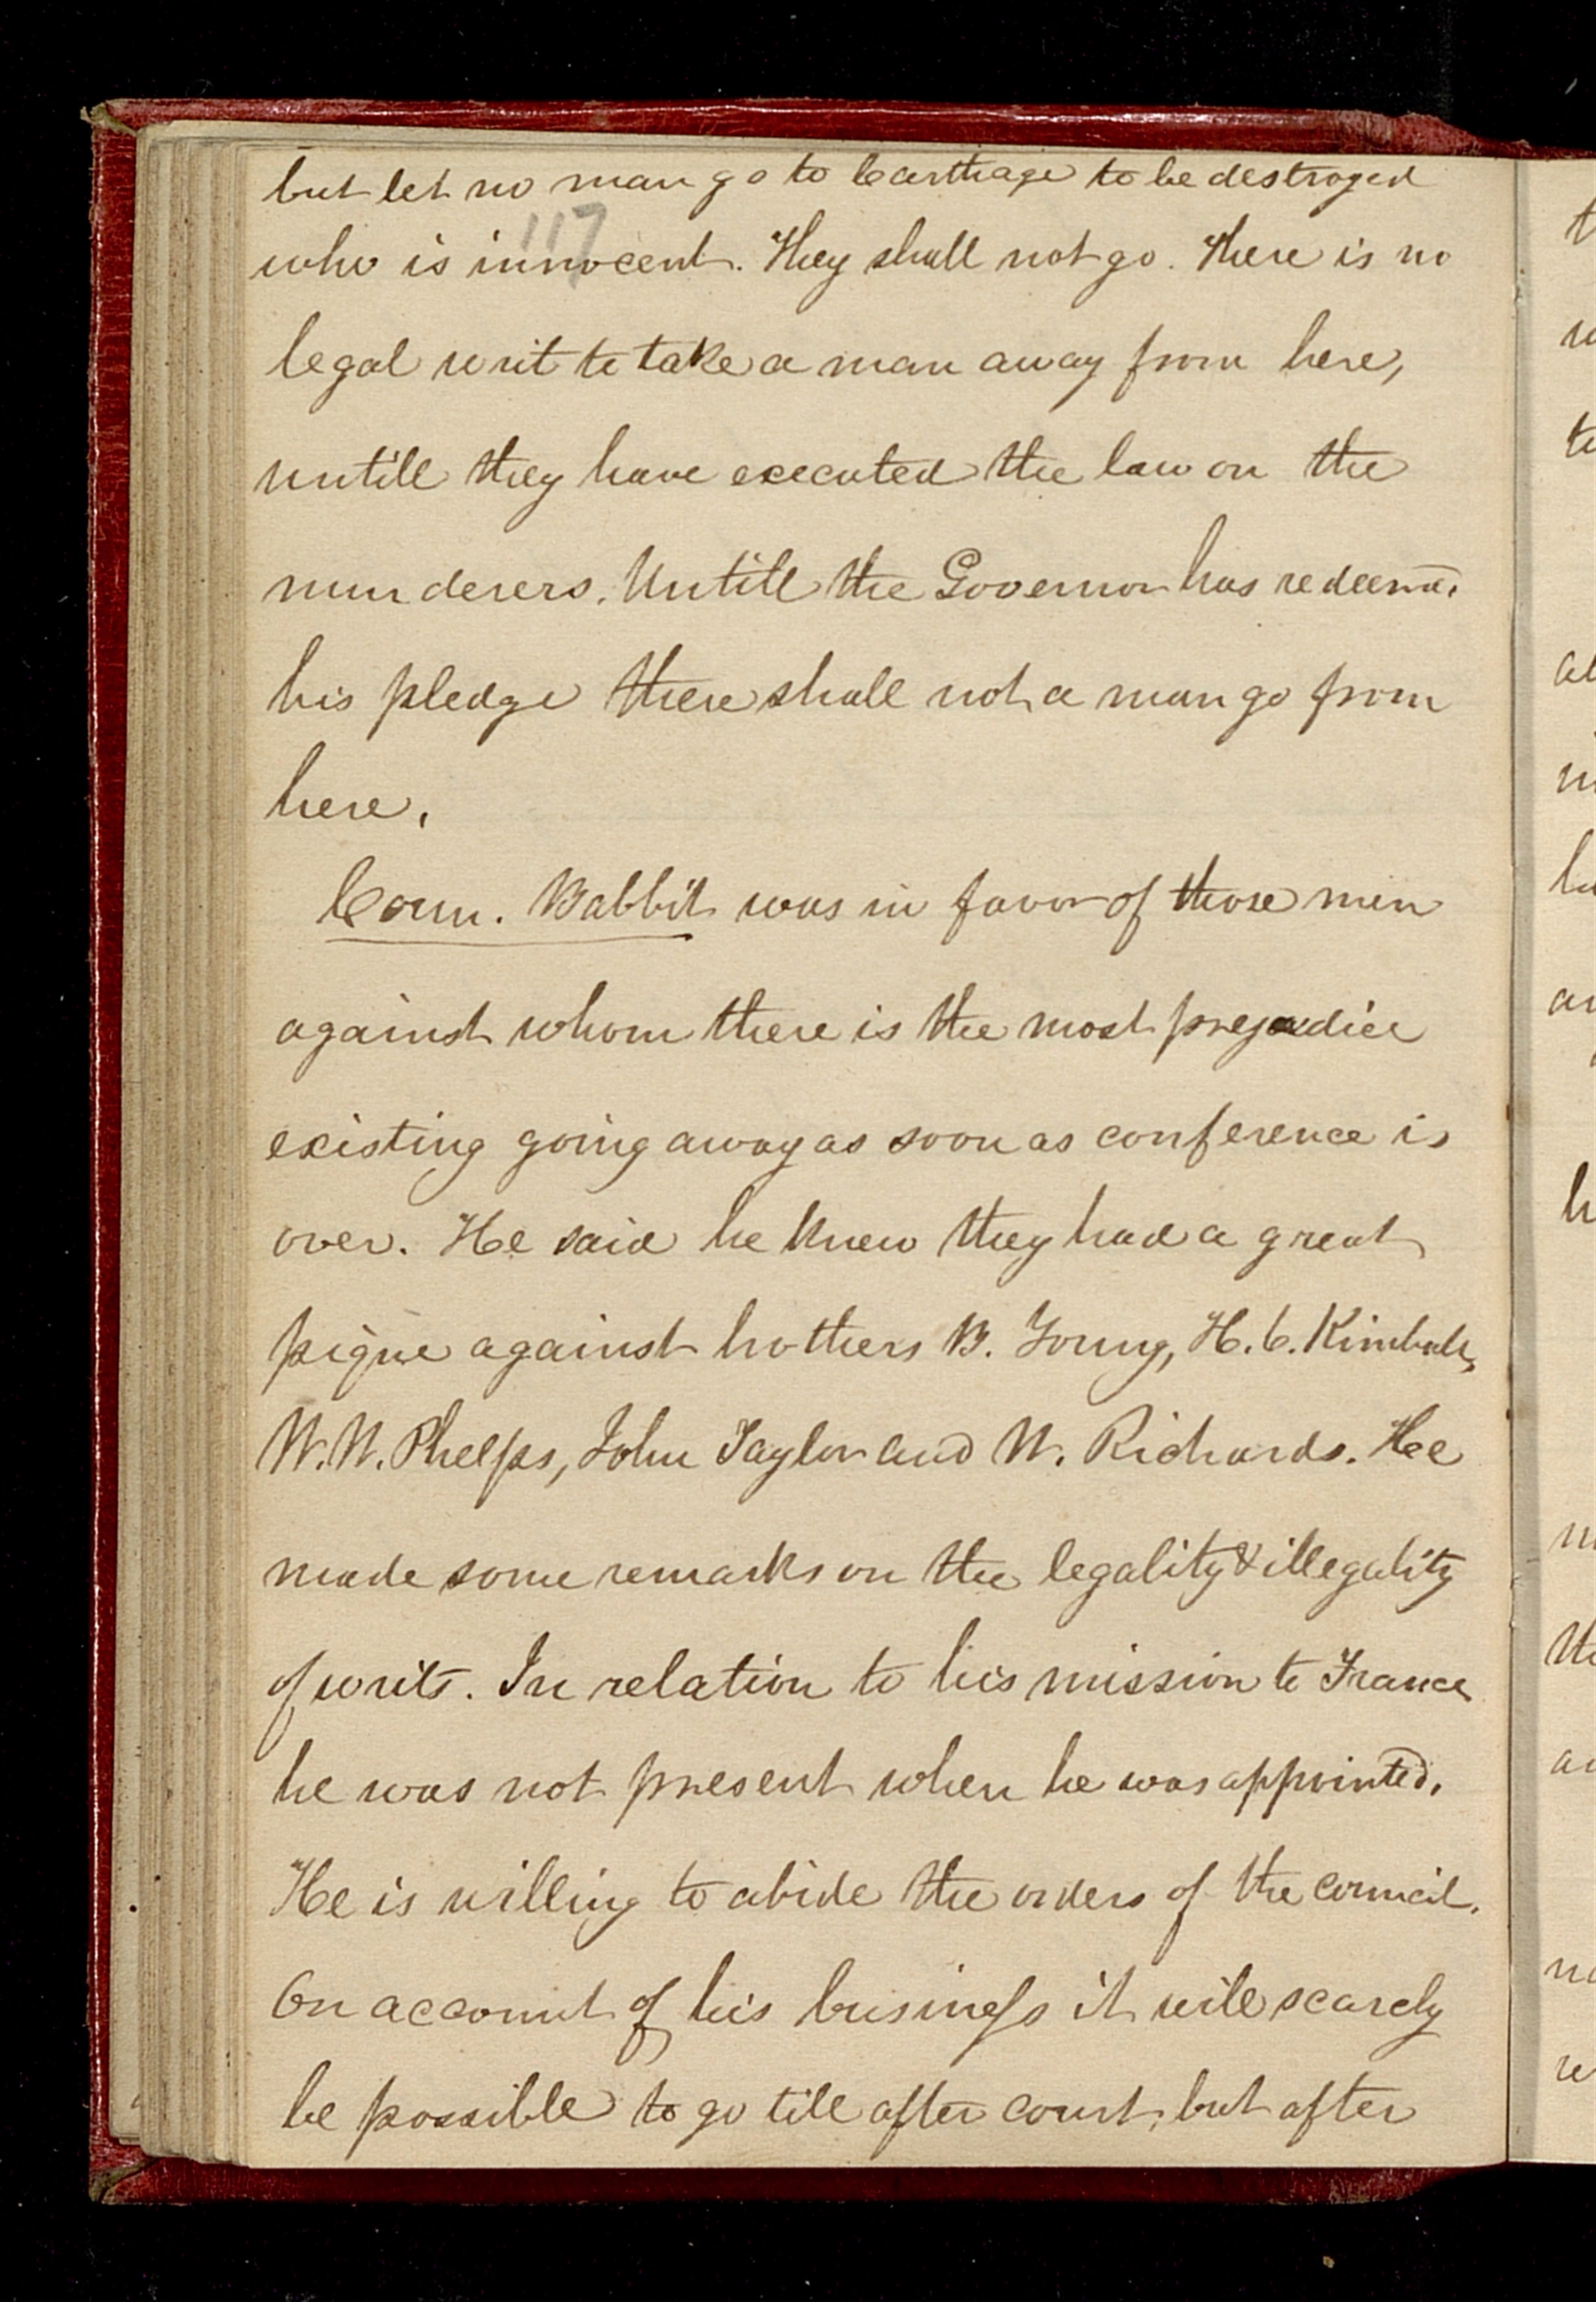 but let no man go to Carthage to be destroyed
117
who is innocent. They shall not go. There is no
legal writ to take a man away from here,
untill they have executed the law on the
murderers. Untill the Governor has redeemd.
his pledge there shall not a man go from
here.
Coun. Babbit was in favor of those men
against whom there is the most prejudice
existing going away as soon as conference is
over. He said he knew they had a great
pique against brothers B. Young, H. C. Kimball,
W. W. Phelps, John Taylor and W. Richards. He
made some remarks on the legality & illegality
of writs. In relation to his mission to France
he was not present when he was appointed.
He is willing to abide the orders of the council.
On account of his business it will scarcely
be possible to go till after court, but after